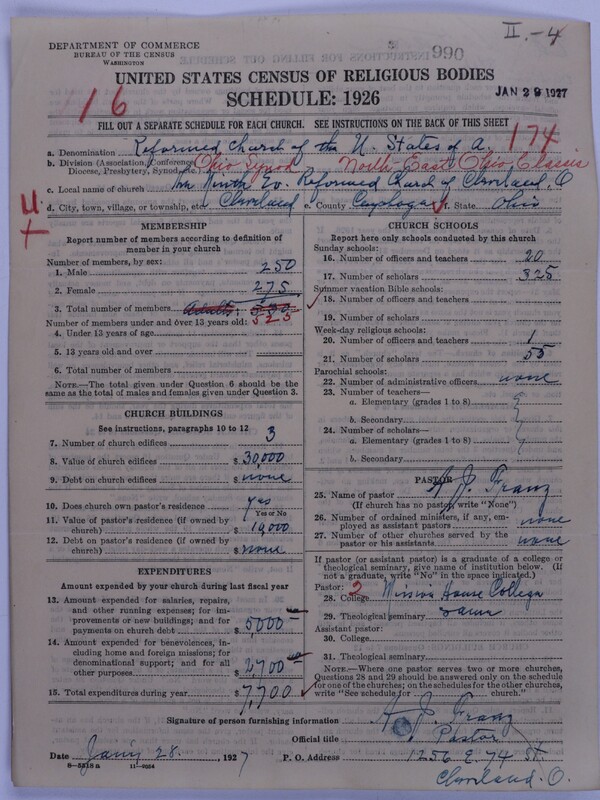 II.-4
DEPARTMENT OF COMMERCE
BUREAU OF THE CENSUS
WASHINGTON
990
UNITED STATES CENSUS OF RELIGIOUS BODIES
SCHEDULE: 1926
JAN 29 1927
16
FILL OUT A SEPARATE SCHEDULE FOR EACH CHURCH. SEE INSTRUCTIONS ON THE BACK OF THIS SHEET
174
a. Denomination Reformed Church of the U. States of A.
b. Division (Association, Conference, Diocese, Presbytery, Synod, etc.) Ohio Synod North-East Ohio Classis
c. Local name of church Ninth Ev. Reformed Church of Cleveland, O
d. City, town, village, or township, etc. Cleveland e. County Cuyahoga f. State Ohio
MEMBERSHIP
Report number of members according to definition of
member in your church
Number of members, by sex:
1. Male 250
2. Female 275
3. Total number of members Adults: 525
Number of members under and over 13 years old:
4. Under 13 years of age
5. 13 years old and over
6. Total number of members
NOTE.—The total given under Question 6 should be the
same as the total of males and females given under Question 3.
CHURCH BUILDINGS
See instructions, paragraphs 10 to 12
7. Number of church edifices 3
8. Value of church edifices $ 30,000
9. Debt on church edifices $ none
10. Does church own pastor's residence? yes
Yes or No
11. Value of pastor's residence (if owned by
church) $ 10,000
12. Debt on pastor's residence (if owned by
church) $ none
EXPENDITURES
Amount expended by your church during last fiscal year
13. Amount expended for salaries, repairs,
and other running expenses; for im-
provements or new buildings; and for
payments on church debt $ 5,000
14. Amount expended for benevolences, in-
cluding home and foreign missions; for
denominational support; and for all
other purposes $ 2,700
15. Total expenditures during year $ 7,700
CHURCH SCHOOLS
Report here only schools conducted by this church
Sunday schools:
16. Number of officers and teachers 20
17. Number of scholars 325
Summer vacation Bible schools:
18. Number of officers and teachers
19. Number of scholars
Week-day religious schools:
20. Number of officers and teachers 1
21. Number of scholars 55
Parochial schools:
22. Number of administrative officers none
23. Number of teachers—
a. Elementary (grades 1 to 8)
b. Secondary
24. Number of scholars—
a. Elementary (grades 1 to 8)
b. Secondary
PASTOR
25. Name of pastor A. J. Franz
(If church has no pastor, write "None")
26. Number of ordained ministers, if any, em-
ployed as assistant pastors none
27. Number of other churches served by the
pastor or his assistants none
If pastor (or assistant pastor) is a graduate of a college or
theological seminary, give name of institution below. (If
not a graduate, write "No" in the space indicated.)
Pastor: 2
28. College Mission House College
29. Theological seminary same
Assistant pastor:
30. College
31. Theological seminary
NOTE.—Where one pastor serves two or more churches,
Questions 28 and 29 should be answered only on the schedule
for one of the churches; on the schedules for the other churches,
write "See schedule for church."
Signature of person furnishing information A. J. Franz
Official title Pastor
Date Jan 28, 1927 P. O. Address 1256 E. 74 St.
8-5318a 11-7024
Cleveland. O.